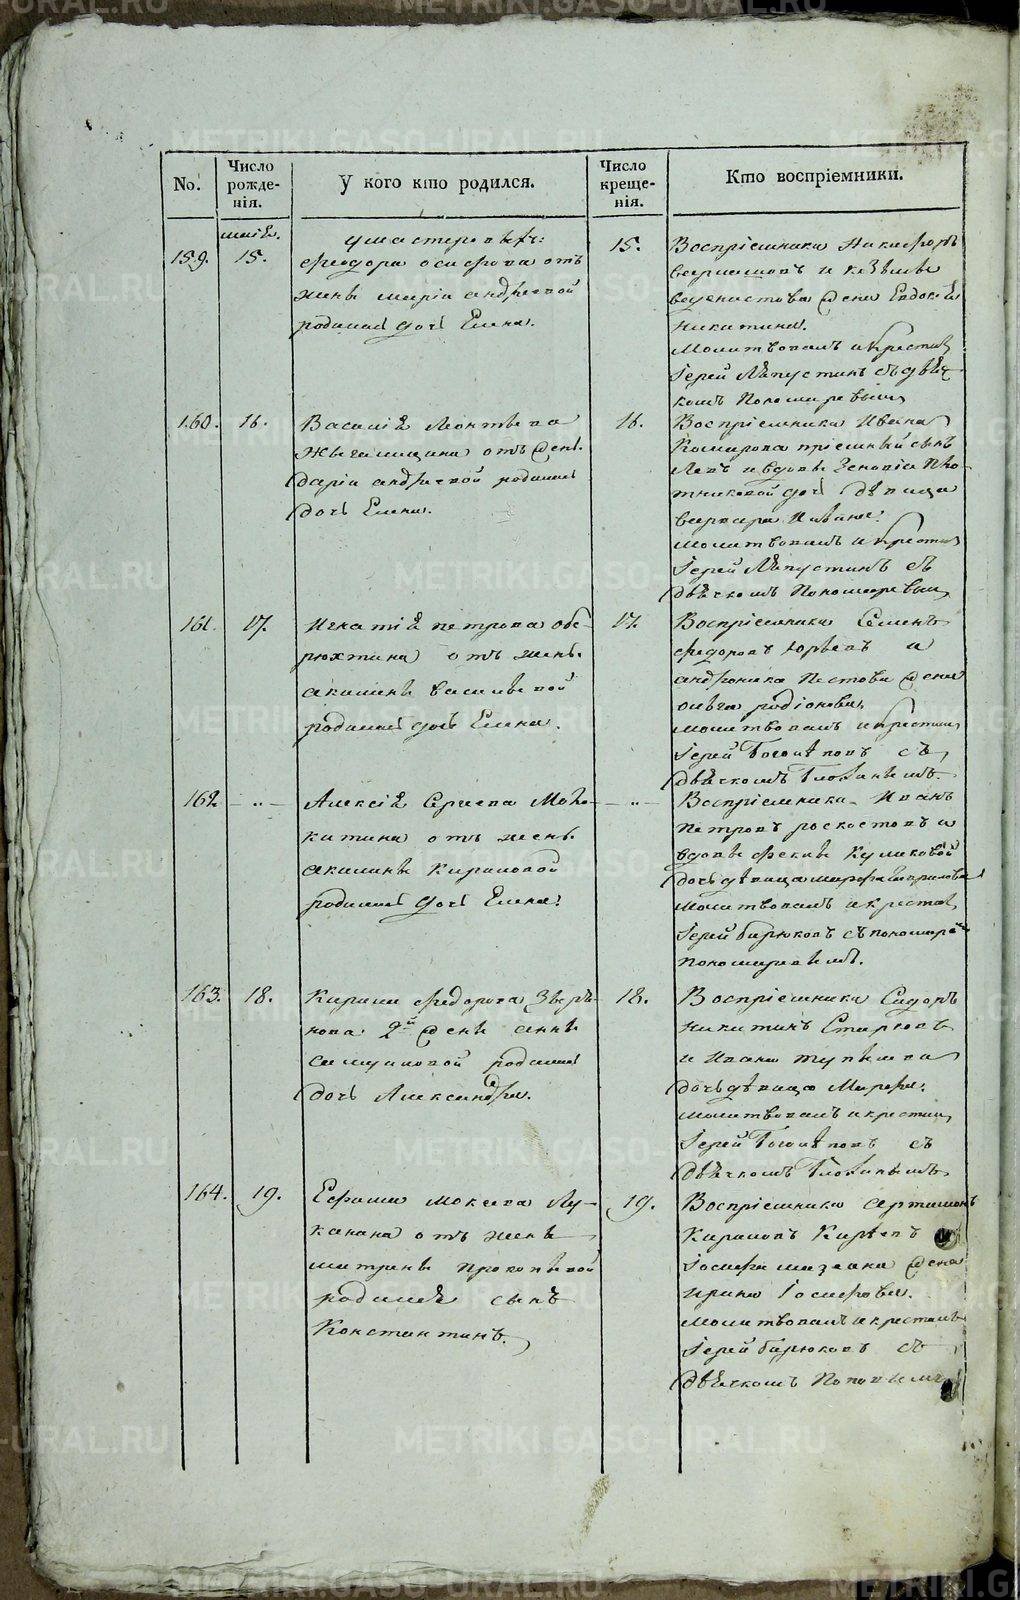 METRIKI.GASO-URAL.RU
No.
Число рожде-нія.
У кого кто родился.
Число креще-нія.
Кто воспріемники.
маія.
159. 15.
у мастероваго:
Феодора осифова отъ
жены маріи андреевой
родилась дочь Елена.
15.
Воспріемники Никифоръ
и казныве
жена Евдокея
Никитина.
Молитвовалъ и крестил
Іерей Ляпустинъ съ дьяч-
комъ Пономаревым
160. 16.
Василія Леонтьева
отъ жены
Даріи андреевой родилась
дочь Елена.
16.
Воспріемники Ивана
Комарова пріемный сынъ
Левъ и вдовы Зеновіи Пло-
тниковой дочь дѣвица
варвара Ивана.
молитвовалъ и крестил
Іерей Ляпустинъ съ
Дьячкомъ Пономаревым
161. 17.
Игнатія петрова Об-
рюхтина отъ жены
акилины васильевой
родилась дочь Елена.
17.
Воспріемники Семенъ
федоровъ Юрьевъ и
андроника Пестова жена
ольга родіонова
молитвовалъ и крестил
Іерей Боголѣповъ съ
Дьячкомъ
162 — „ —
Алексія Сергеева Моко-
китина отъ жены
акилины Кириловой
родилась дочь Елена.
— „ —
Воспріемники Иванъ
петровъ и
вдовы феклы Куликовой
дочь дѣвица марфа
молитвовалъ и крестил
Іерей бирюковъ съ пономарем
пономаревымъ.
163. 18.
Кирила федорова Зверѣ-
нова 2й жены анны
родилась
дочь Александра.
18.
Воспріемники Сидоръ
никитинъ Старковъ
и Ивана тупылева
дочь дѣвица Марфа.
молитвовалъ и крестил
Іерей Боголѣповъ съ
Дьячкомъ
164. 19.
Ефима Мокеева Лу-
канина отъ жены
матрены прокопьевой
родился сынъ
Константинъ.
19.
Воспріемники артамонъ
Кириловъ Кирѣевъ и
Іосифа мазеина жена
ирина Іосифова.
молитвовалъ и крестилъ
Іерей бирюковъ съ
Дьячкомъ Поповымъ